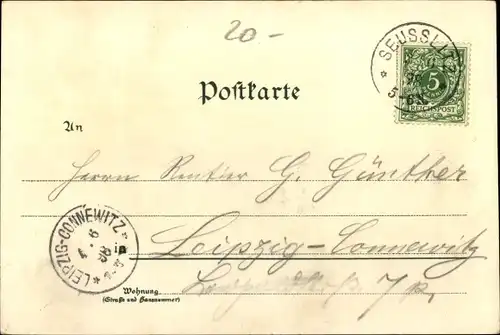 20-
SEUSSLITZ
5
REICHSPOST
Postkarte
An
Herrn Rentier G. Günther
LEIPZIG-CONNEWITZ
in
Leipzig-Connewitz
Wohnung.
(Straße und Hausnummer)